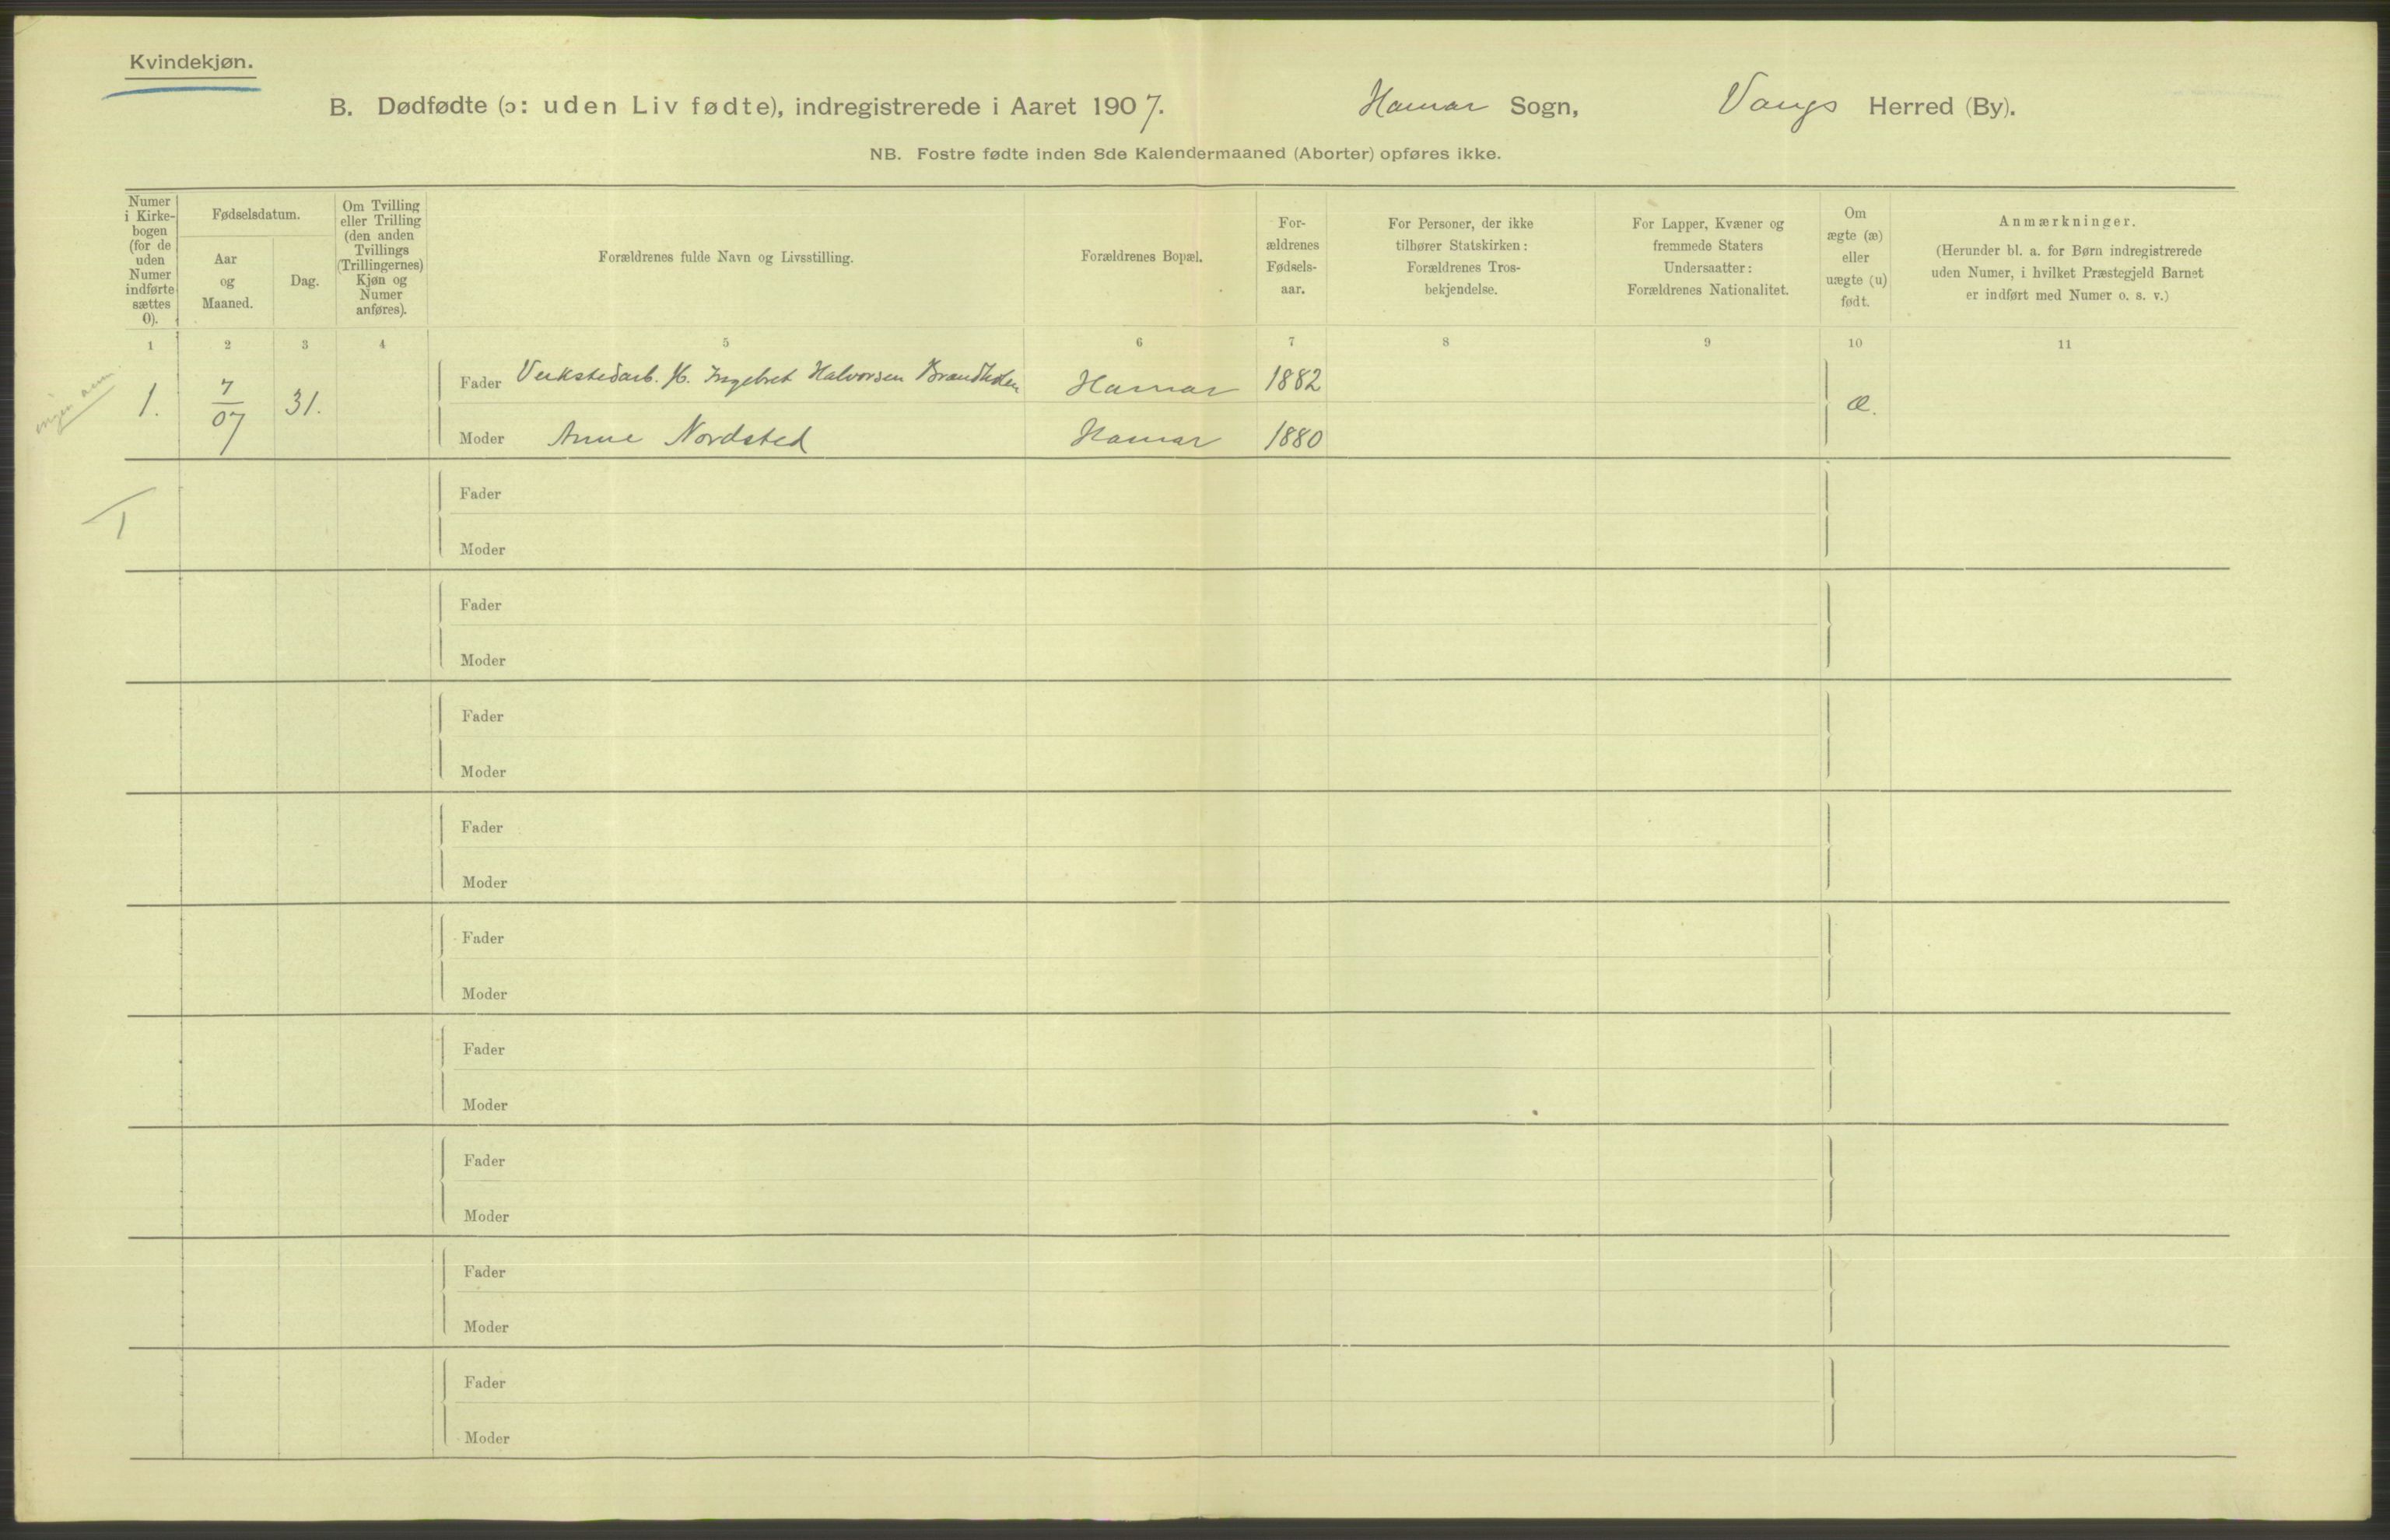 Kvindekjøn.
B. Dødfødte (ɔ: uden Liv fødte), indregistrerede i Aaret 1907. Hamar Sogn, Vangs Herred (By).
NB. Fostre fødte inden 8de Kalendermaaned (Aborter) opføres ikke.
Numer
i Kirke-
bogen
(for de
uden
Numer
indførte
sættes
0).
Fødselsdatum.
Aar
og
Maaned.
Dag.
Om Tvilling
eller Trilling
(den anden
Tvillings
(Trillingernes)
Kjøn og
Numer
anføres).
Forældrenes fulde Navn og Livsstilling.
Forældrenes Bopæl.
For-
ældrenes
Fødsels-
aar.
For Personer, der ikke
tilhører Statskirken:
Forældrenes Tros-
bekjendelse.
For Lapper, Kvæner og
fremmede Staters
Undersaatter:
Forældrenes Nationalitet.
Om
ægte (æ)
eller
uægte (u)
født.
Anmærkninger.
(Herunder bl. a. for Børn indregistrerede
uden Numer, i hvilket Præstegjeld Barnet
er indført med Numer o. s. v.)
1 2 3 4 5 6 7 8 9 10 11
Fader Verkstedarb. H. Ingebret Halvorsen Hamar 1882
1. 7/07 31. æ.
Moder Anne Nordsted Hamar 1880
Fader
1
Moder
Fader
Moder
Fader
Moder
Fader
Moder
Fader
Moder
Fader
Moder
Fader
Moder
Fader
Moder
Fader
Moder